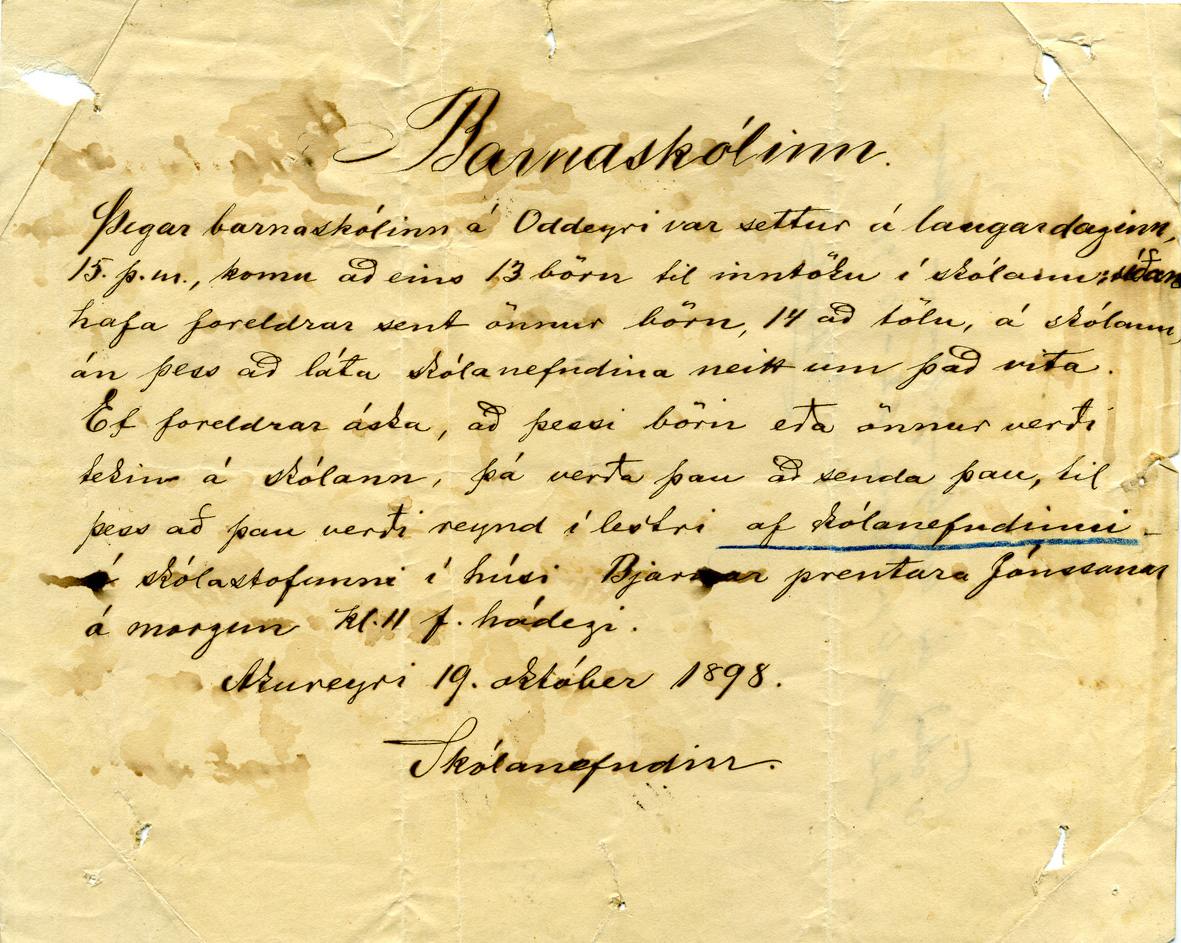 Barnaskólinn.
Þegar barnaskólinn á Oddeyri var settur á laugardaginn,
15. þ.m., komu að eins 13 börn til inntöku í skólann; síðan
hafa foreldrar sent önnur börn, 14 að tölu, á skólann,
án þess að láta skólanefndina neitt um það vita.
Ef foreldrar áska, að þessi börn eða önnur verði
tekin á skólann, þá verða þau að senda þau, til
þess að þau verði reynd í lestri af skólanefndinni
á skólastofunni í húsi Bjarnar prentara Jónssonar
á morgun kl. 11 f. hádegi.
Akureyri 19. október 1898.
Skólanefndin.